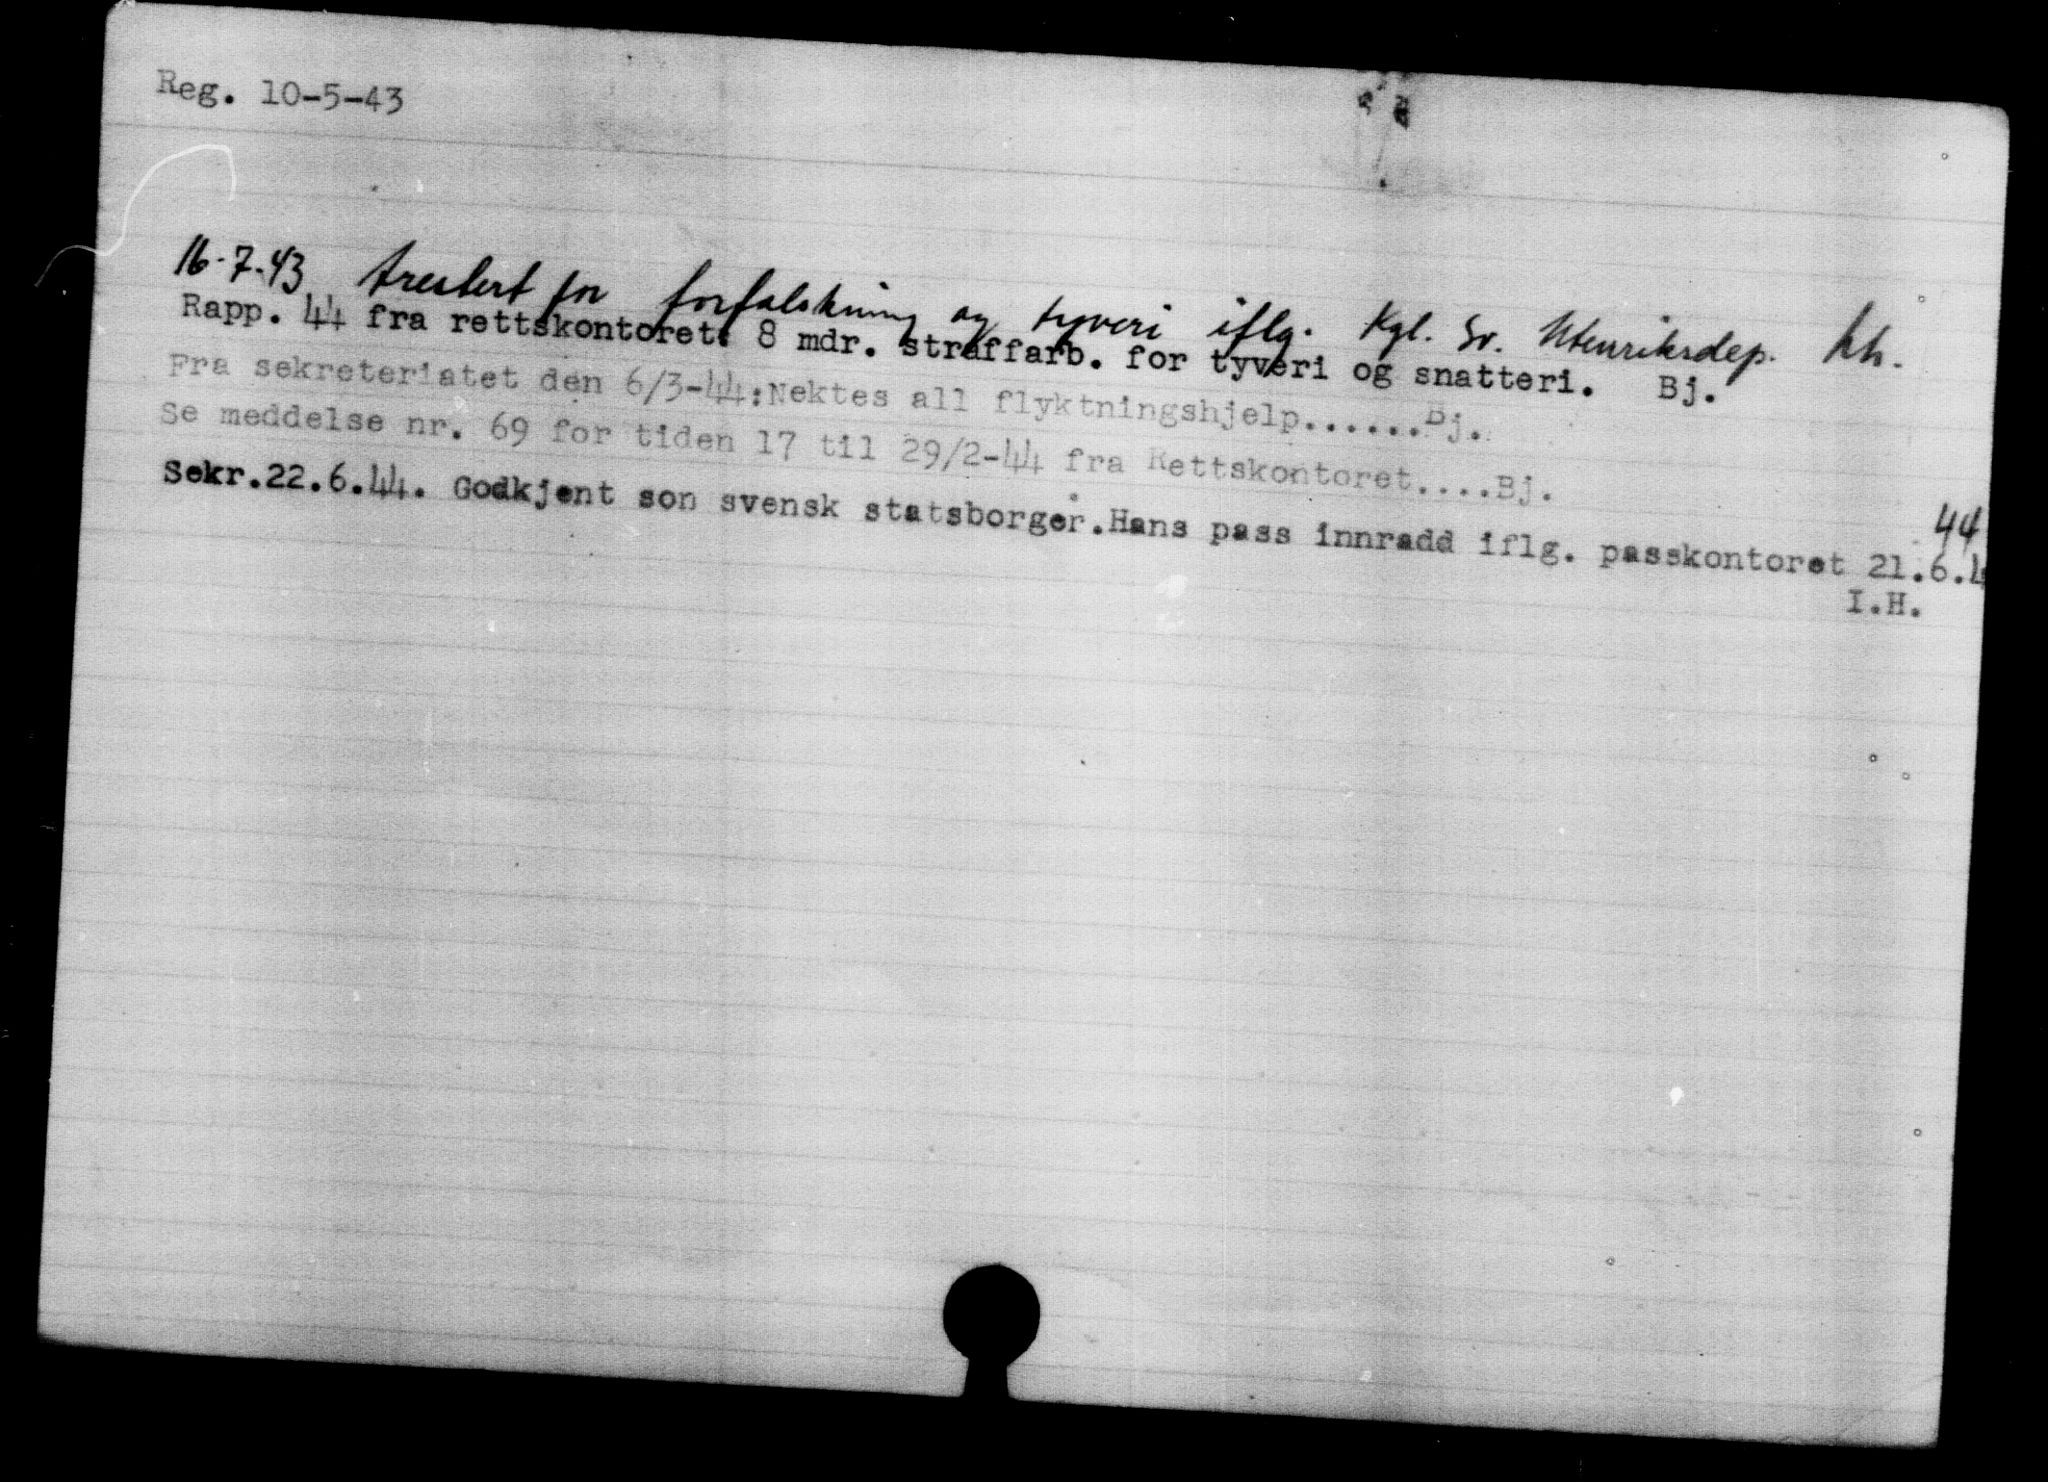 Reg. 10-5-43
16-7-43 Arrestert for forfalskning og tyveri iflg. Kgl. Sv. Utenriksdep.
Rapp. 44 fra rettskontoret: 8 mdr. straffarb. for tyveri og snatteri. Bj.
Fra sekreteriatet den 6/3-44:Nektes all flyktningshjelp......Bj.
Se meddelse nr. 69 for tiden 17 til 29/2-44 fra Rettskontoret....Bj.
44
Sekr.22.6.44. Godkjent son svensk statsborger.Hans pass innradd iflg. passkontoret 21.6.4
I.H.